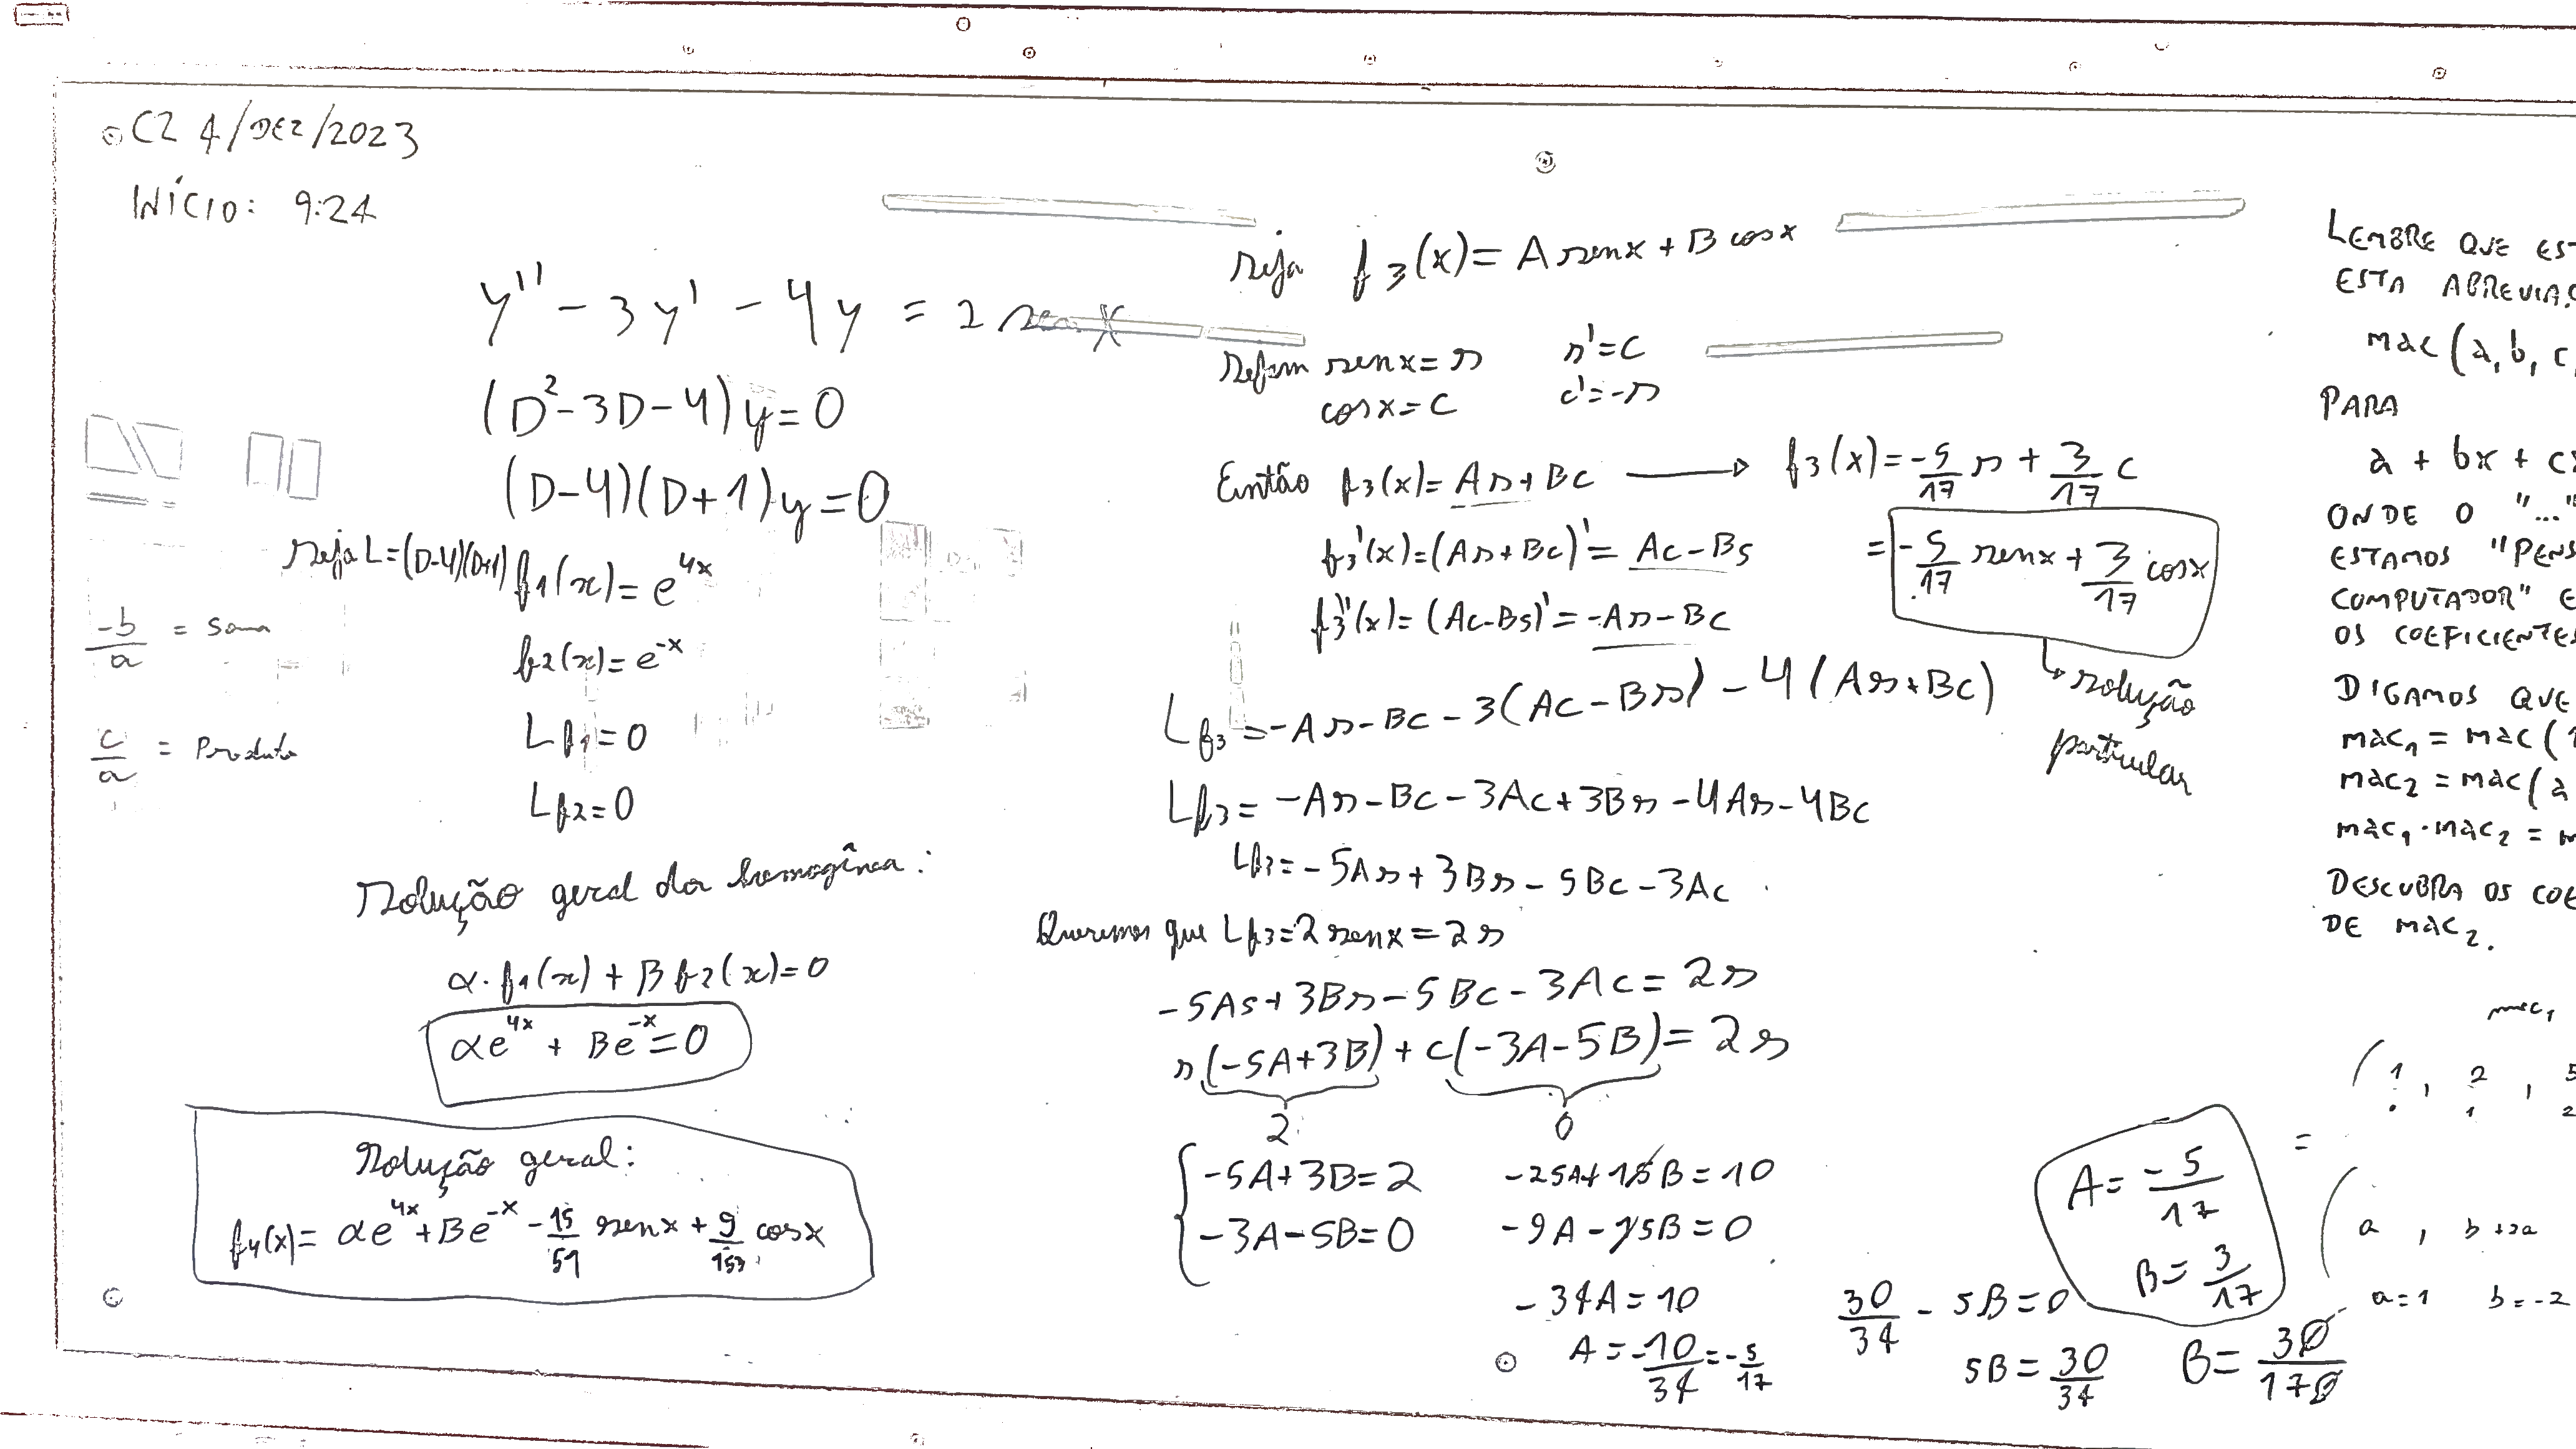 C2 4/DEZ/2023
INÍCIO: 9:24
y'' - 3y' - 4y = 2 sen x
(D²-3D-4)y=0
(D-4)(D+1)y=0
seja L=(D-4)(D+1)
f1(x)=e^4x
-b/a = Soma
f2(x)=e^-x
Lf1=0
c/a = Produto
Lf2=0
Solução geral da homogênea:
α·f1(x)+βf2(x)=0
αe^4x + Be^-x=0
Solução geral:
f4(x)= αe^4x+Be^-x - 15/51 senx + 9/153 cosx
seja f3(x)= A senx + B cosx
sejam senx=s s'=c
cosx=c c'=-s
Então f3(x)= As+Bc → f3(x)=-5/17 s + 3/17 c
f3'(x)=(As+Bc)'= Ac-Bs =-5/17 senx+3/17 cosx
f3''(x)= (Ac-Bs)'=-As-Bc
solução particular
Lf3=-As-Bc-3(Ac-Bs)-4(As+Bc)
Lf3= -As-Bc-3Ac+3Bs-4As-4Bc
Lf3=-5As+3Bs-5Bc-3Ac
Queremos que Lf3=2senx=2s
-5As+3Bs-5Bc-3Ac=2s
s(-5A+3B)+c(-3A-5B)=2s
2 0
-5A+3B=2 -25A+15B=10
-3A-5B=0 -9A-15B=0
-34A=10 30/34 - 5B=0
A=-10/34=-5/17 5B=30/34 B=30/170
A=-5/17
B=3/17
LEMBRE QUE
ESTA
mac(a,b,c,
PARA
a + bx +
ONDE O "..."
ESTAMOS
COMPUTADOR" E
OS COEFICIENTES
DIGAMOS QUE
mac1 = mac(1
mac2 = mac(a
mac1·mac2 =
DESCUBRA OS
DE mac2.
mac1
( 1, 2, 5
1 2
=
( a , b+2a
a=1 b=-2